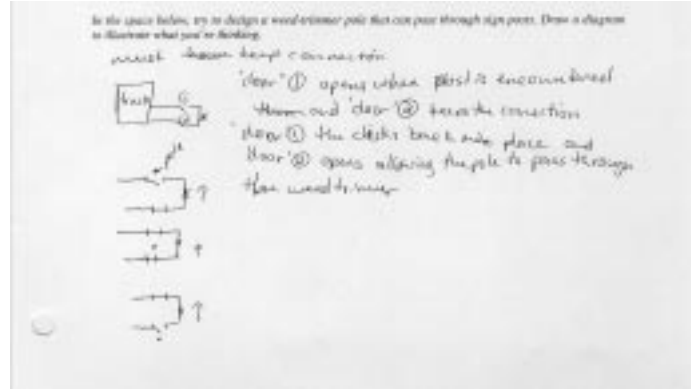 In the space below, try to design a weed-trimmer pole that can pass through sign posts. Draw a diagram
to illustrate what you're thinking.
must keep connection
"door" ① opens when post is encountered
and 'door' ② keeps the connection
truck
"door ① the clicks back into place and
'door' ② opens allowing the pole to pass through
the weed trimmer